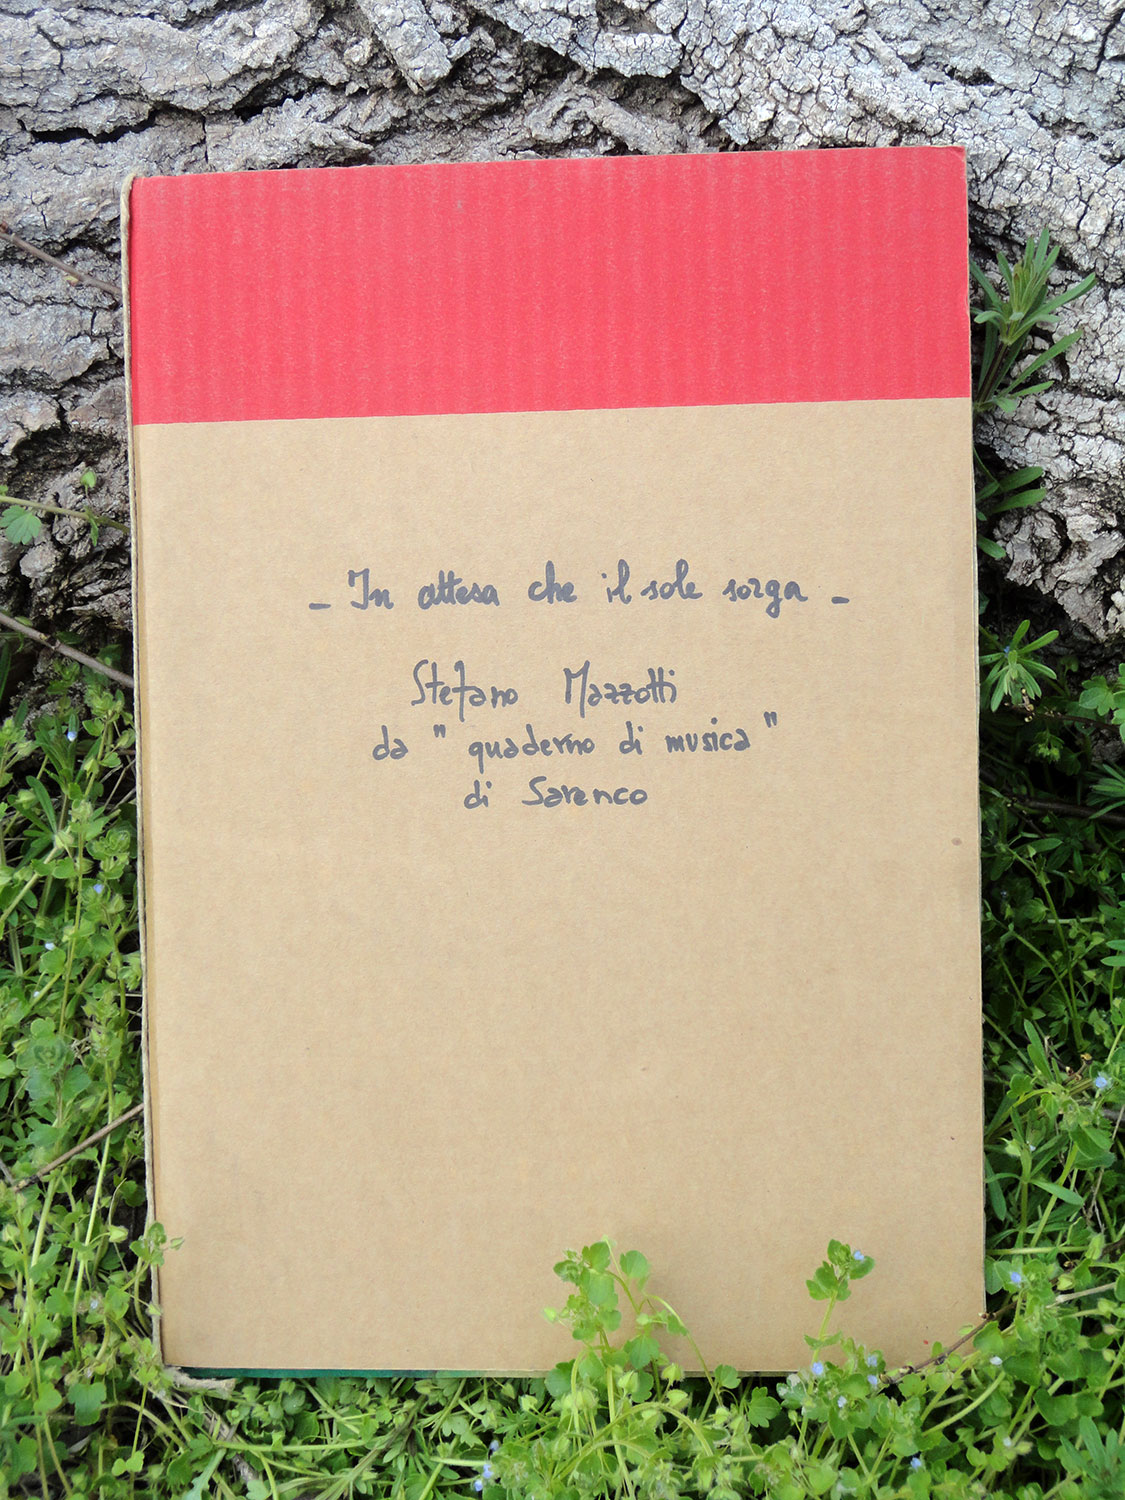 - In attesa che il sole sorga -
Stefano Mazzotti
da "quaderno di musica"
di Sarenco